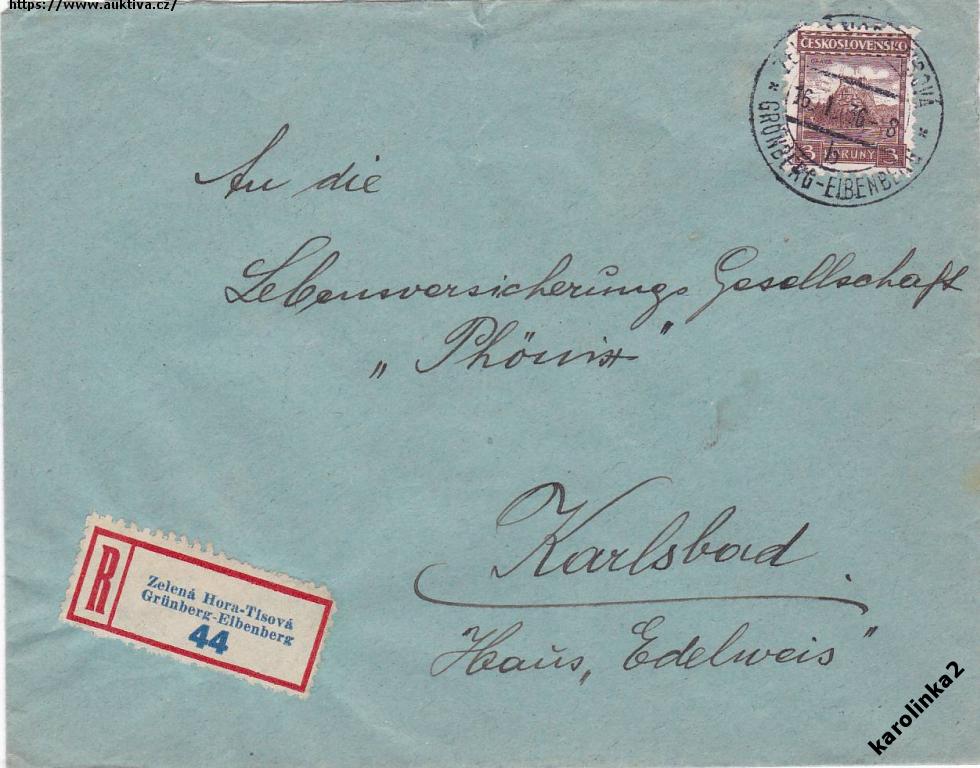 https://www.auktiva.cz/
ČESKOSLOVENSKO
16. I. 36 - 8
b
3 KORUNY 3
GRÜNBERG-EIBENBERG
An die
Lebensversicherungs Gesellschaft
„Phönix"
Karlsbad.
Haus „Edelweis"
R
Zelená Hora-Tisová
Grünberg-Eibenberg
44
karolinka2